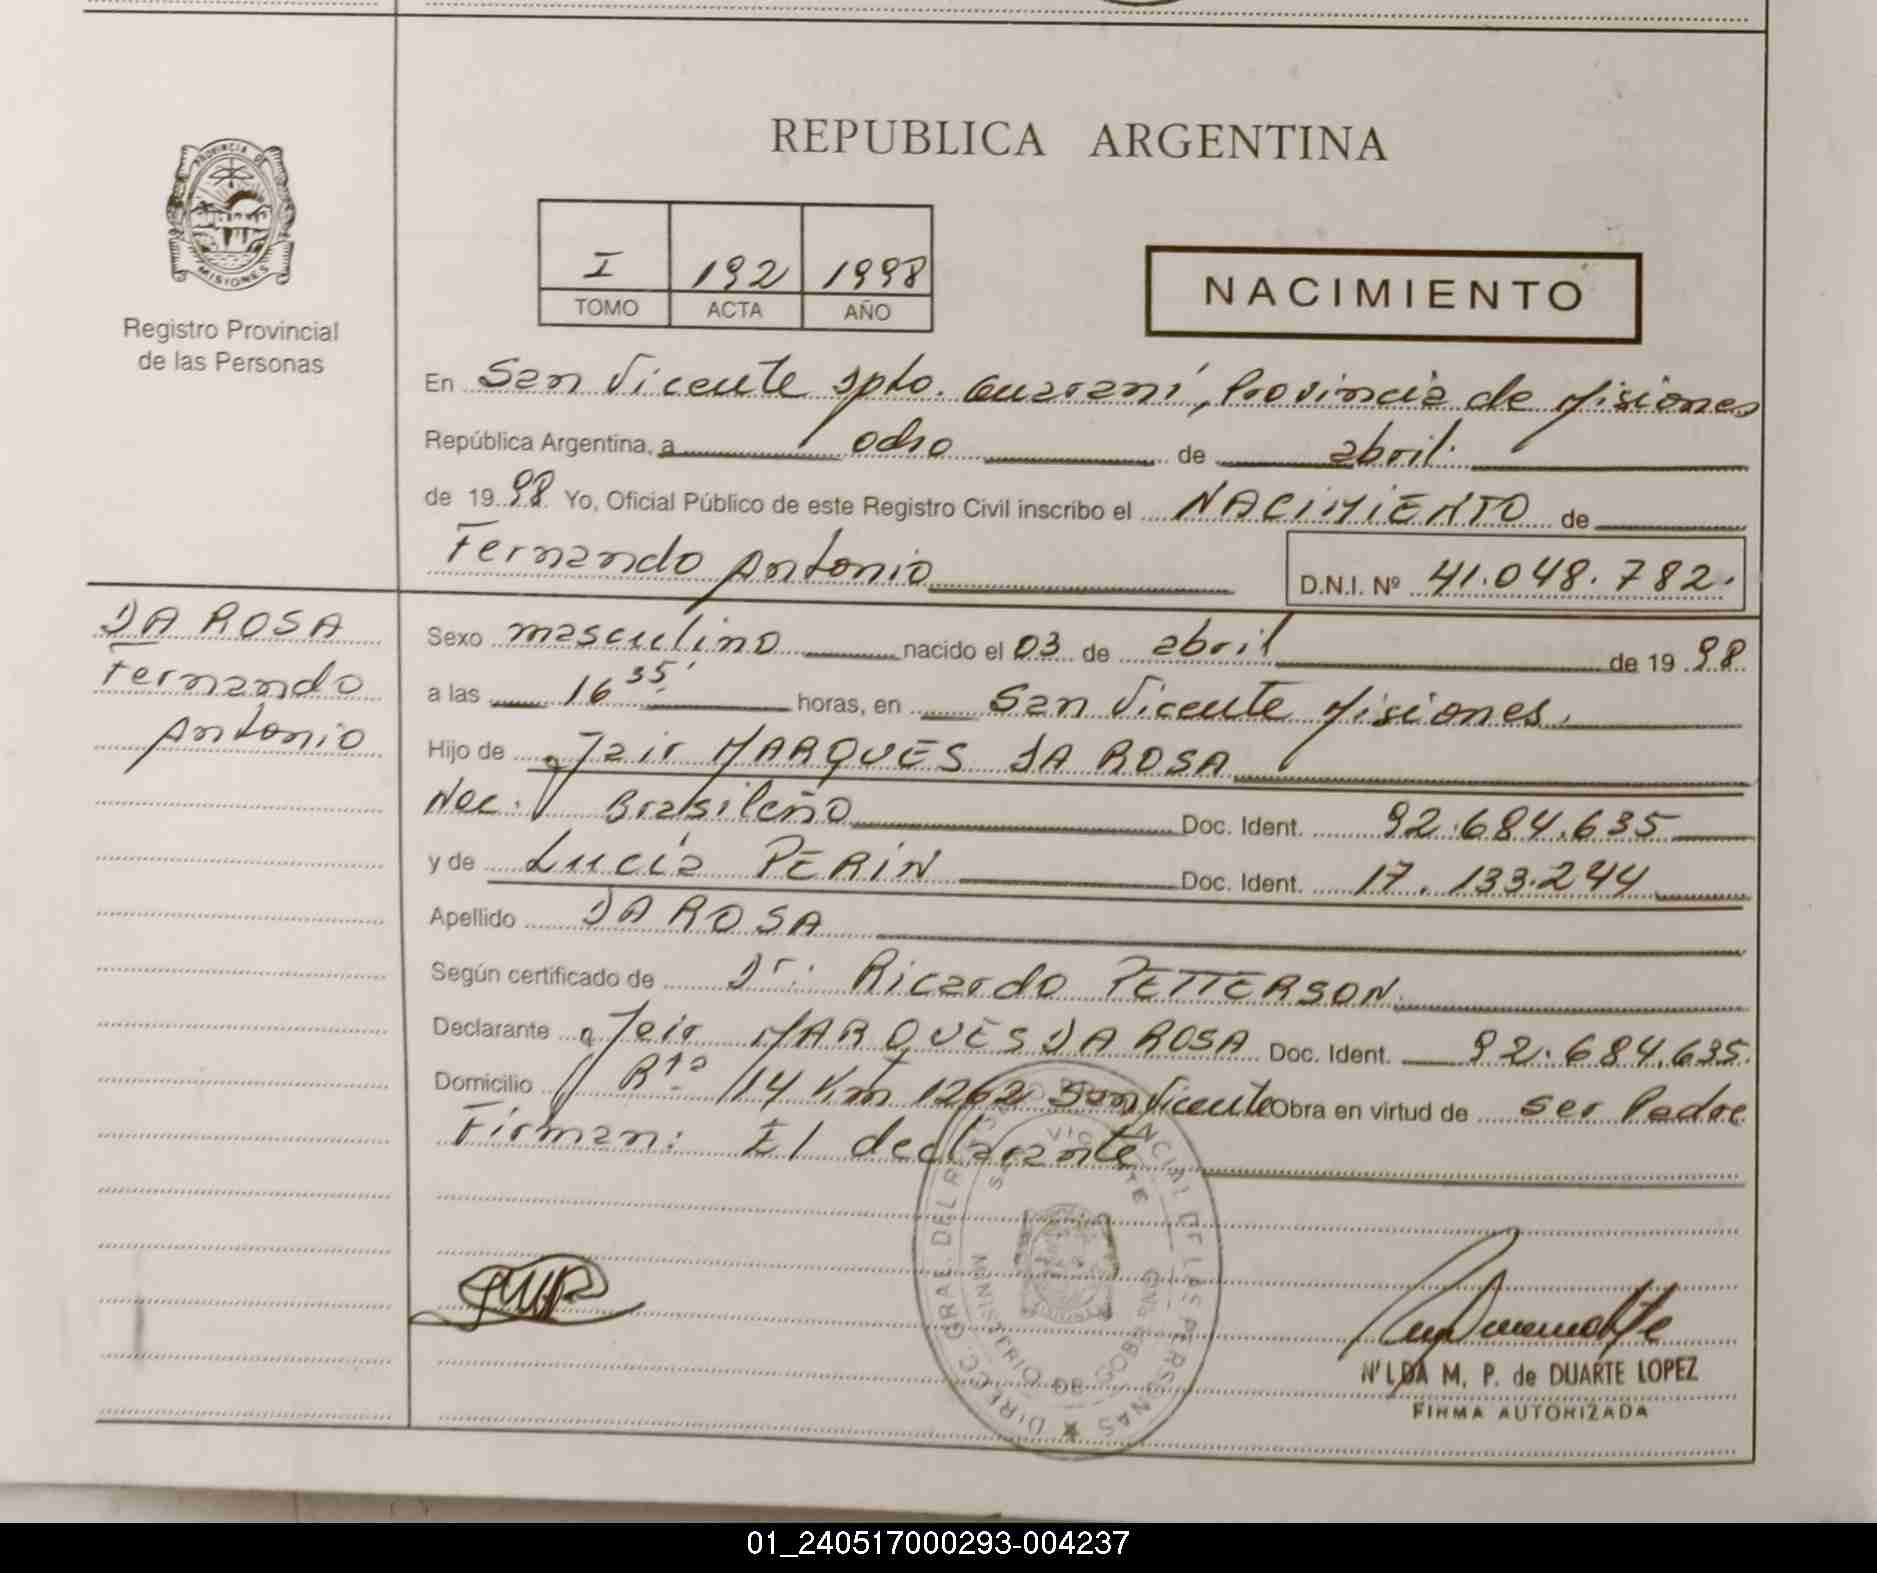 REPUBLICA ARGENTINA
PROVINCIA DE
MISIONES
Registro Provincial
de las Personas
I 192 1998
TOMO ACTA AÑO
NACIMIENTO
En San Vicente Dpto. Guaraní, Provincia de Misiones
República Argentina, a ocho de abril.
de 1998 Yo, Oficial Público de este Registro Civil inscribo el NACIMIENTO de
Fernando Antonio D.N.I. Nº 41.048.782.
DA ROSA
Fernando
Antonio
Sexo masculino nacido el 03 de abril de 1998
a las 16 35' horas, en San Vicente Misiones.
Hijo de Jair MARQUES DA ROSA
Nac: Brasileño Doc. Ident. 92.684.635
y de Lucía PERIN Doc. Ident. 17.133.244
Apellido DA ROSA
Según certificado de Dr: Ricardo PETTERSON
Declarante Jair MARQUES DA ROSA Doc. Ident. 92.684.635.
Domicilio Rta 14 Km 1262 San Vicente Obra en virtud de ser Padre
Firman: El declarante
DIRECC. GRAL. DEL R PROVINCIAL DE LAS PERSONAS
SAN VICENTE
MINISTERIO DE GOBIERNO
NILDA M. P. de DUARTE LOPEZ
FIRMA AUTORIZADA
01_240517000293-004237